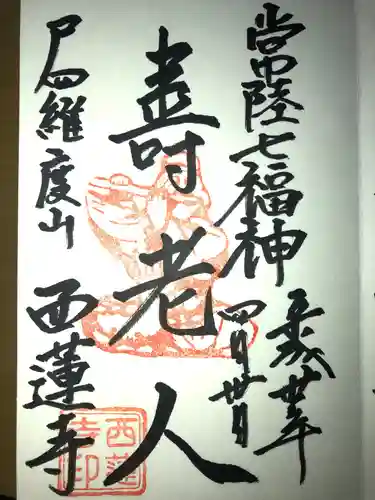 常陸七福神
平成卅年
四月卅日
壽老人
尸羅度山
西蓮寺
西蓮寺印